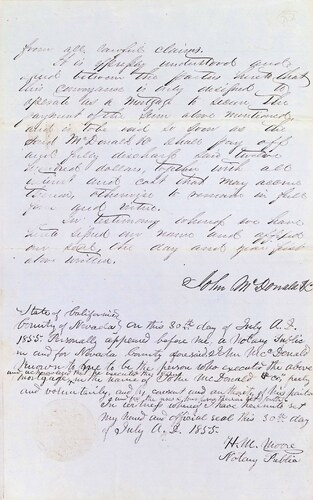 from all lawful claims.
It is expressly understood and
agreed between the parties hereto that
this conveyance is only designed to
operate as a Mortgage to secure the
payment of the sum above mentioned
and is to be void so soon as the
said McDonald & Co shall pay off
and fully discharge said
hundred dollars, together with all
interest and cost that may accrue
thereon, otherwise to remain in full
force and virtue.
In testimony whereof we have
hereto signed our name and affixed
our seal, the day and year first
above written.
John McDonald & Co
State of California
County of Nevada } on this 30th day of July A.D.
1855 Personally appeared before me, a Notary Public
in and for Nevada County aforesaid John McDonald
Known to me to be the person who executed the above
mortgage, in the name of John McDonald & Co; freely
and voluntarily, and by consent and authority of his partner
and for the uses & purposes therein set forth
In witness whereof I have hereunto set
my hand and official seal this 30th day
of July A.D. 1855
H. M. Moore
Notary Public